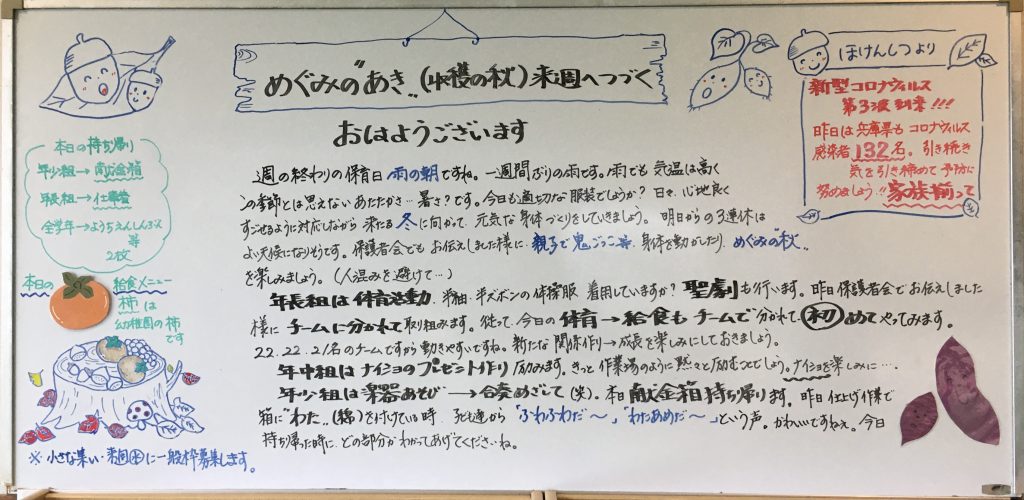 めぐみの"あき"(収穫の秋)来週へつづく
おはようございます
週の終わりの保育日 雨の朝ですね。一週間ぶりの雨です。雨でも 気温は高く
この季節とは思えないあたたかさ…暑さ?です。今日も適切な服装でしょうか?日々、心地良く
すごせるように対応しながら 来たる冬に向かって、元気な身体づくりをしていきましょう。明日からの3連休は
よい天候になりそうです。保護者会でも お伝えしました様に、親子で鬼ごっこ等、身体を動かしたり、めぐみの"秋"
を楽しみましょう。(人混みを避けて…)
年長組は 体育活動、半袖・半ズボンの体操服 着用していますか?聖劇も行います。昨日保護者会でお伝えしました
様に チームに分かれて 取り組みます。従って、今日の 体育→給食も チームで分かれて、初めて やってみます。
22.22.21名のチームですから動きやすいですね。新たな 関係作り→成長を楽しみにしておきましょう。
年中組は ナイショのプレゼント作り 励みます。きっと 作業場のように 黙々と励むことでしょう。ナイショを楽しみに…。
年少組は 楽器あそび→合奏めざして(笑)。本日 献金箱 持ち帰ります。昨日 仕上げ作業で
箱に"わた"(綿)を付けている時、子ども達から「ふわふわだ〜」「わたあめだ〜」という声。かわいいですねぇ。今日
持ち帰った時に、どの部分か わかってあげてくださいね。
本日の持ち帰り
年少組→献金箱
年長組→仕事費
全学年→ようちえんしんぶん
等
2枚
本日の 給食メニュー
柿は
幼稚園の柿
です
※ 小さな集い・来週に一般枠募集します。
ほけんしつより
新型コロナウィルス
第3波到来!!!
昨日は兵庫県も コロナウィルス
感染者132名。引き続き
気を引き締めて 予防に
努めましょう!!家族揃って